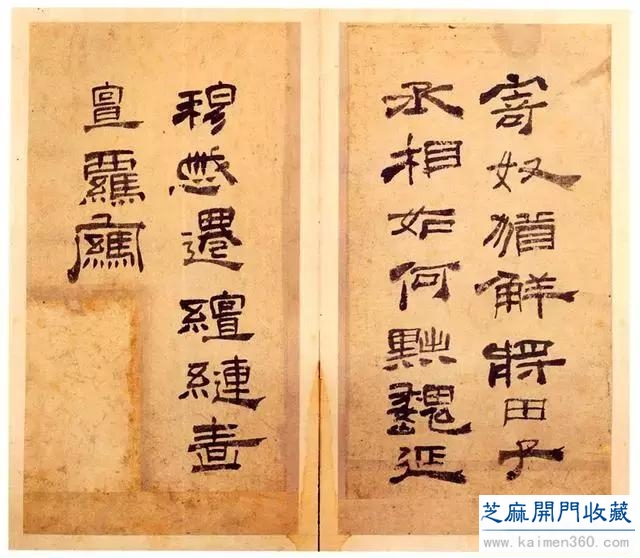 寄奴猶解將田子
丞相如何魏延
穆遷繵縺
宣
芝麻開門收藏
www.kaimen360.com